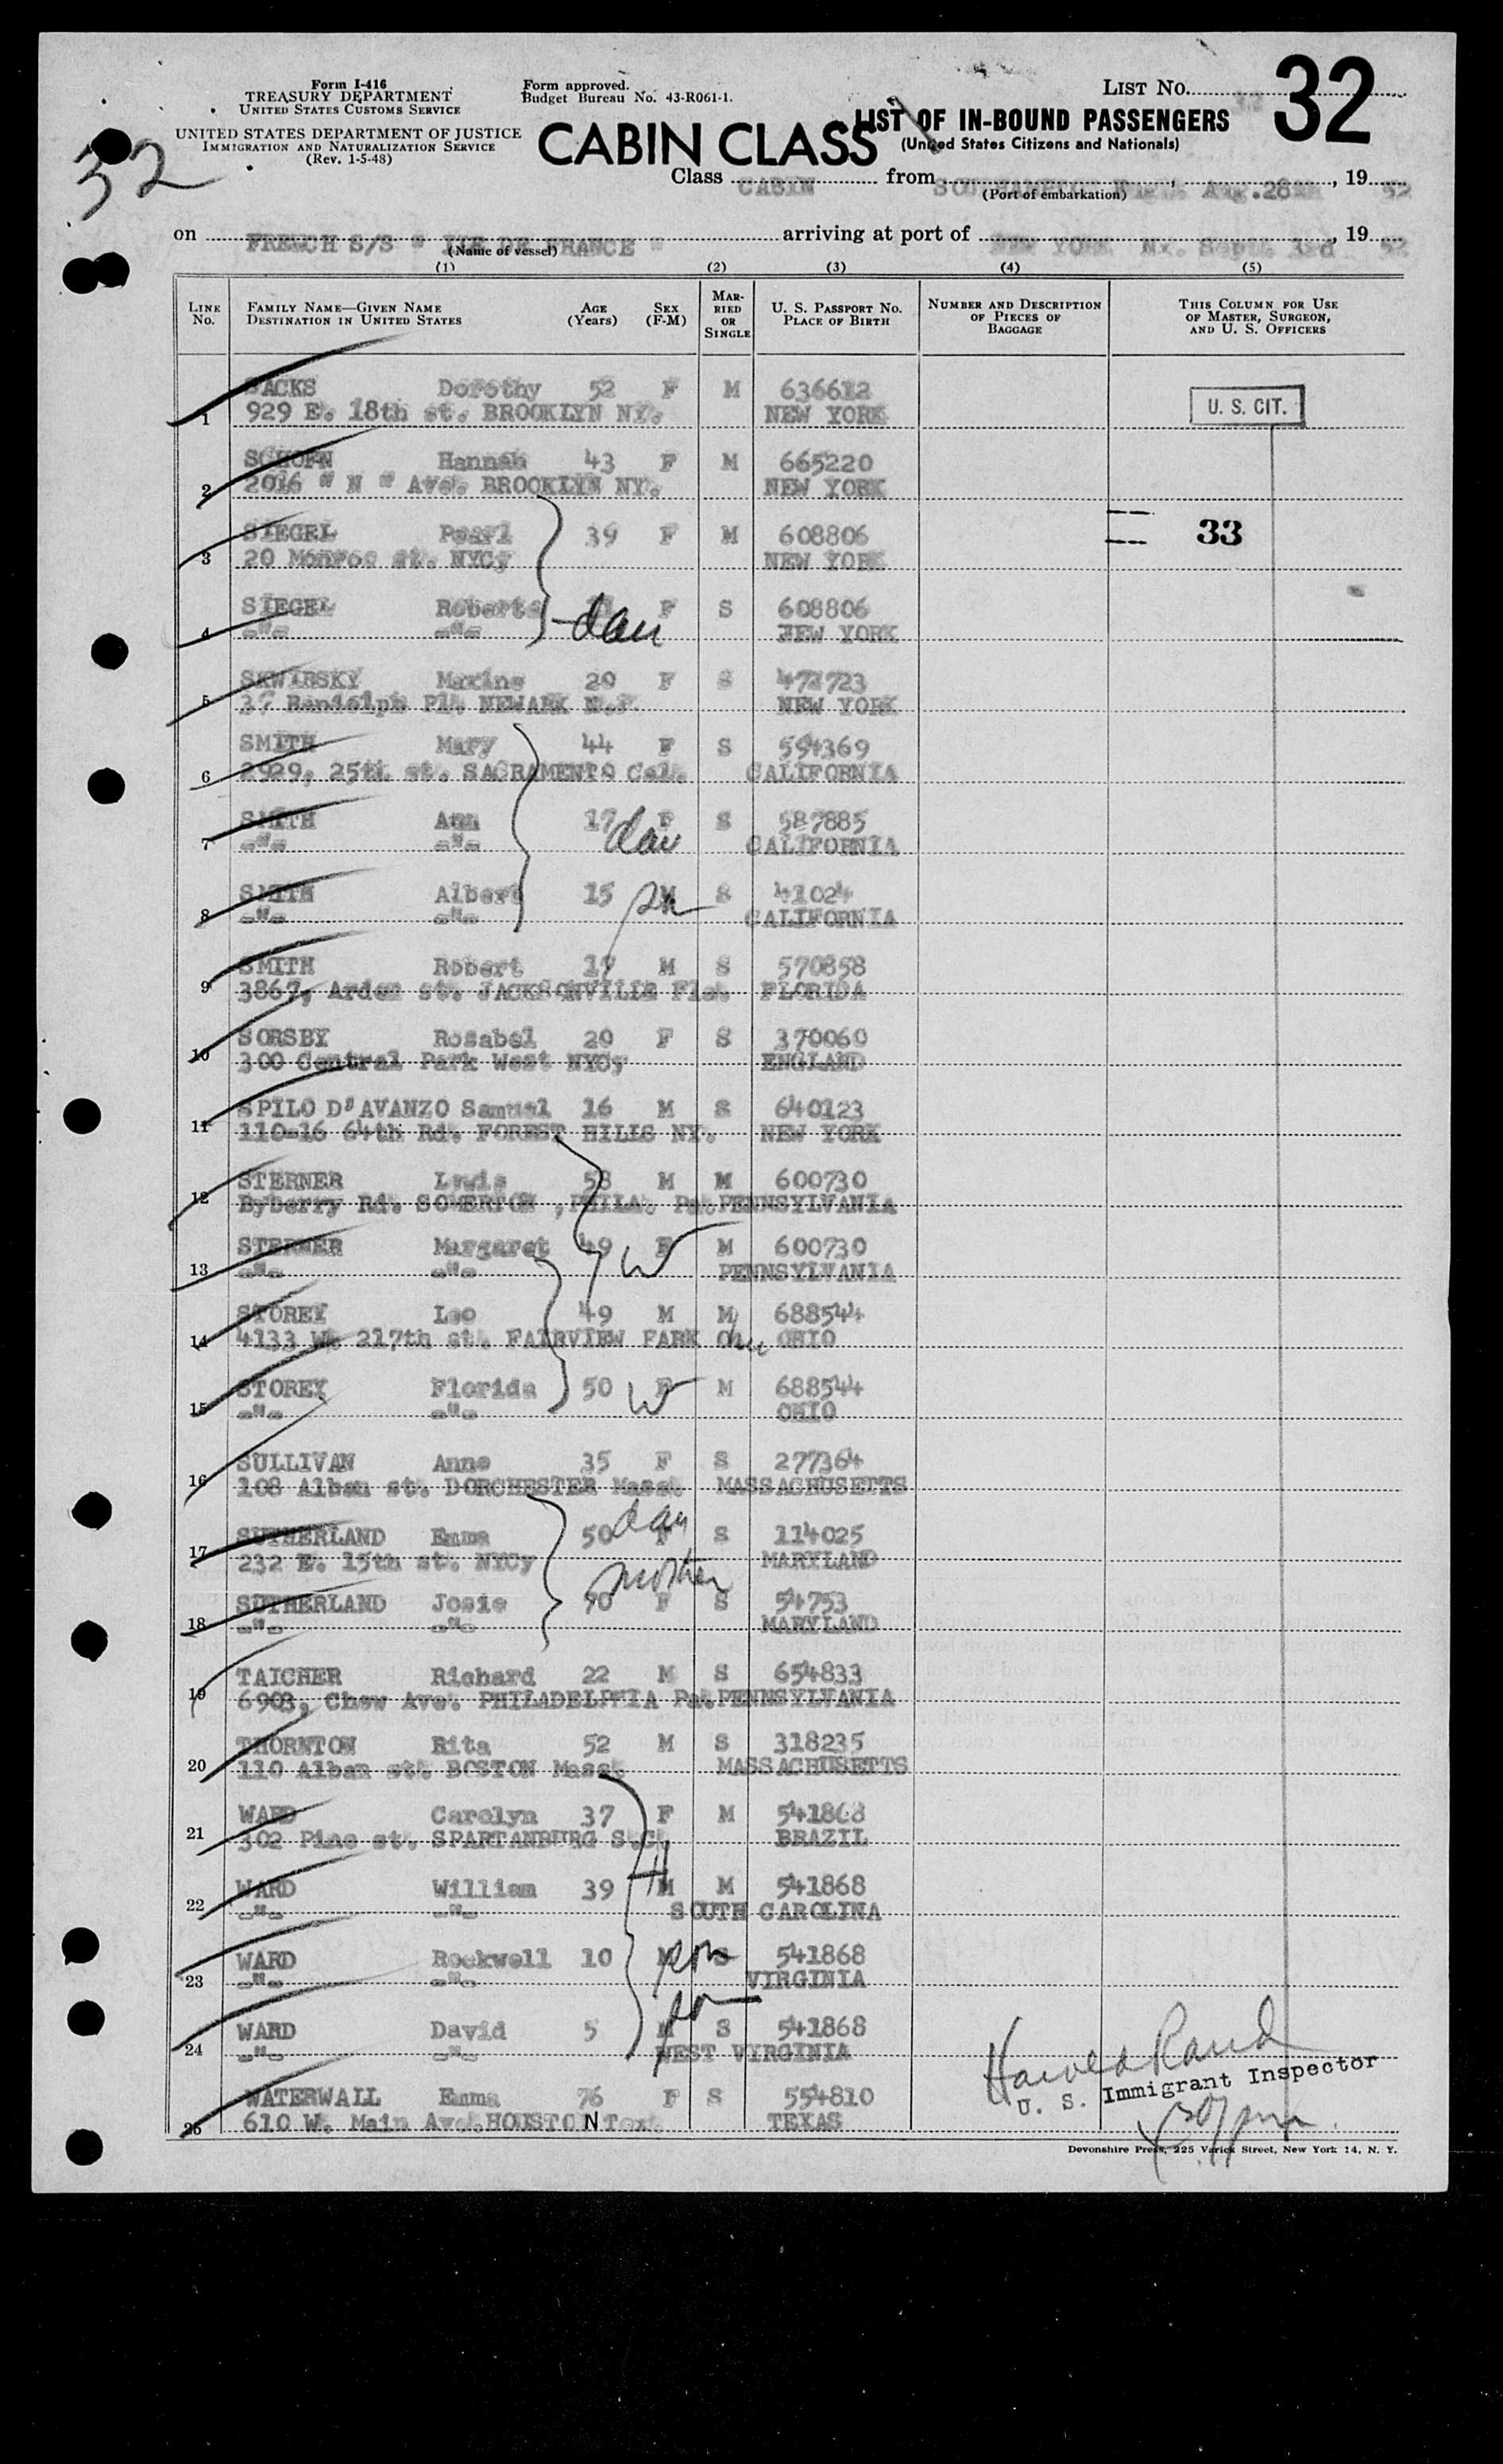 Form I-416
TREASURY DEPARTMENT
UNITED STATES CUSTOMS SERVICE
UNITED STATES DEPARTMENT OF JUSTICE
IMMIGRATION AND NATURALIZATION SERVICE
(Rev. 1-5-48)
32
Form approved.
Budget Bureau No. 43-R061-1.
LIST No. 32
32
CABIN CLASS
LIST OF IN-BOUND PASSENGERS
(United States Citizens and Nationals)
Class CABIN from SOUTHAMPTON, Aug. 28th, 19 52
(Port of embarkation)
on FRENCH S/S " ILE DE FRANCE " arriving at port of NEW YORK NY. Sept. 3rd, 19 52
(Name of vessel)
(1) (2) (3) (4) (5)
LINE No. FAMILY NAME—GIVEN NAME DESTINATION IN UNITED STATES AGE (Years) SEX (F-M) MARRIED OR SINGLE U. S. PASSPORT No. PLACE OF BIRTH NUMBER AND DESCRIPTION OF PIECES OF BAGGAGE THIS COLUMN FOR USE OF MASTER, SURGEON, AND U. S. OFFICERS
SACKS Dorothy 52 F M 636612 U. S. CIT.
1 929 E. 18th st. BROOKLYN NY. NEW YORK
SCHORN Hannah 43 F M 665220
2 2016 " N " Ave. BROOKLYN NY. NEW YORK
SIEGEL Pearl 39 F M 608806 33
3 20 Monroe st. NYCy NEW YORK
SIEGEL Roberta dau F S 608806
4 -"- -"- NEW YORK
SKWIRSKY Maxine 20 F S 472723
5 37 Randolph Pl. NEWARK N.J. NEW YORK
SMITH Mary 44 F S 594369
6 2929, 25th st. SACRAMENTO Cal. CALIFORNIA
SMITH Ann 17 F dau S 587885
7 -"- -"- CALIFORNIA
SMITH Albert 15 M S 41024
8 -"- -"- CALIFORNIA
SMITH Robert 19 M S 570858
9 3867, Arden st. JACKSONVILLE Fla. FLORIDA
SORSBY Rosabel 20 F S 370060
10 300 Central Park West NYCy ENGLAND
SPILO D'AVANZO Samuel 16 M S 640123
11 110-16 64th Rd. FOREST HILLS NY. NEW YORK
STERNER Lewis 58 M M 600730
12 Byberry Rd. SOMERTON, PHILA. Pa. PENNSYLVANIA
STERNER Margaret 49 F W M 600730
13 -"- -"- PENNSYLVANIA
STOREY Leo 49 M M 688544
14 4133 W. 217th st. FAIRVIEW PARK Ohio OHIO
STOREY Florida 50 F W M 688544
15 -"- -"- OHIO
SULLIVAN Anne 35 F S 277364
16 108 Alban st. DORCHESTER Mass. MASSACHUSETTS
SUTHERLAND Emma 50 F dau S 114025
17 232 E. 15th st. NYCy MARYLAND
SUTHERLAND Josie 70 F mother S 54753
18 -"- -"- MARYLAND
TAICHER Richard 22 M S 654833
19 6903, Chew Ave. PHILADELPHIA Pa. PENNSYLVANIA
THORNTON Rita 52 M S 318235
20 110 Alban st. BOSTON Mass. MASSACHUSETTS
WARD Carolyn 37 F M 541868
21 302 Pine st. SPARTANBURG S.C. BRAZIL
WARD William 39 M H M 541868
22 -"- -"- SOUTH CAROLINA
WARD Rockwell 10 M son S 541868
23 -"- -"- VIRGINIA
WARD David 5 M son S 541868
24 -"- -"- WEST VIRGINIA
WATERWALL Emma 76 F S 554810
25 610 W. Main Ave. HOUSTON Tex. TEXAS
Harold Rand
U. S. Immigrant Inspector
Devonshire Press, 225 Varick Street, New York 14, N. Y.